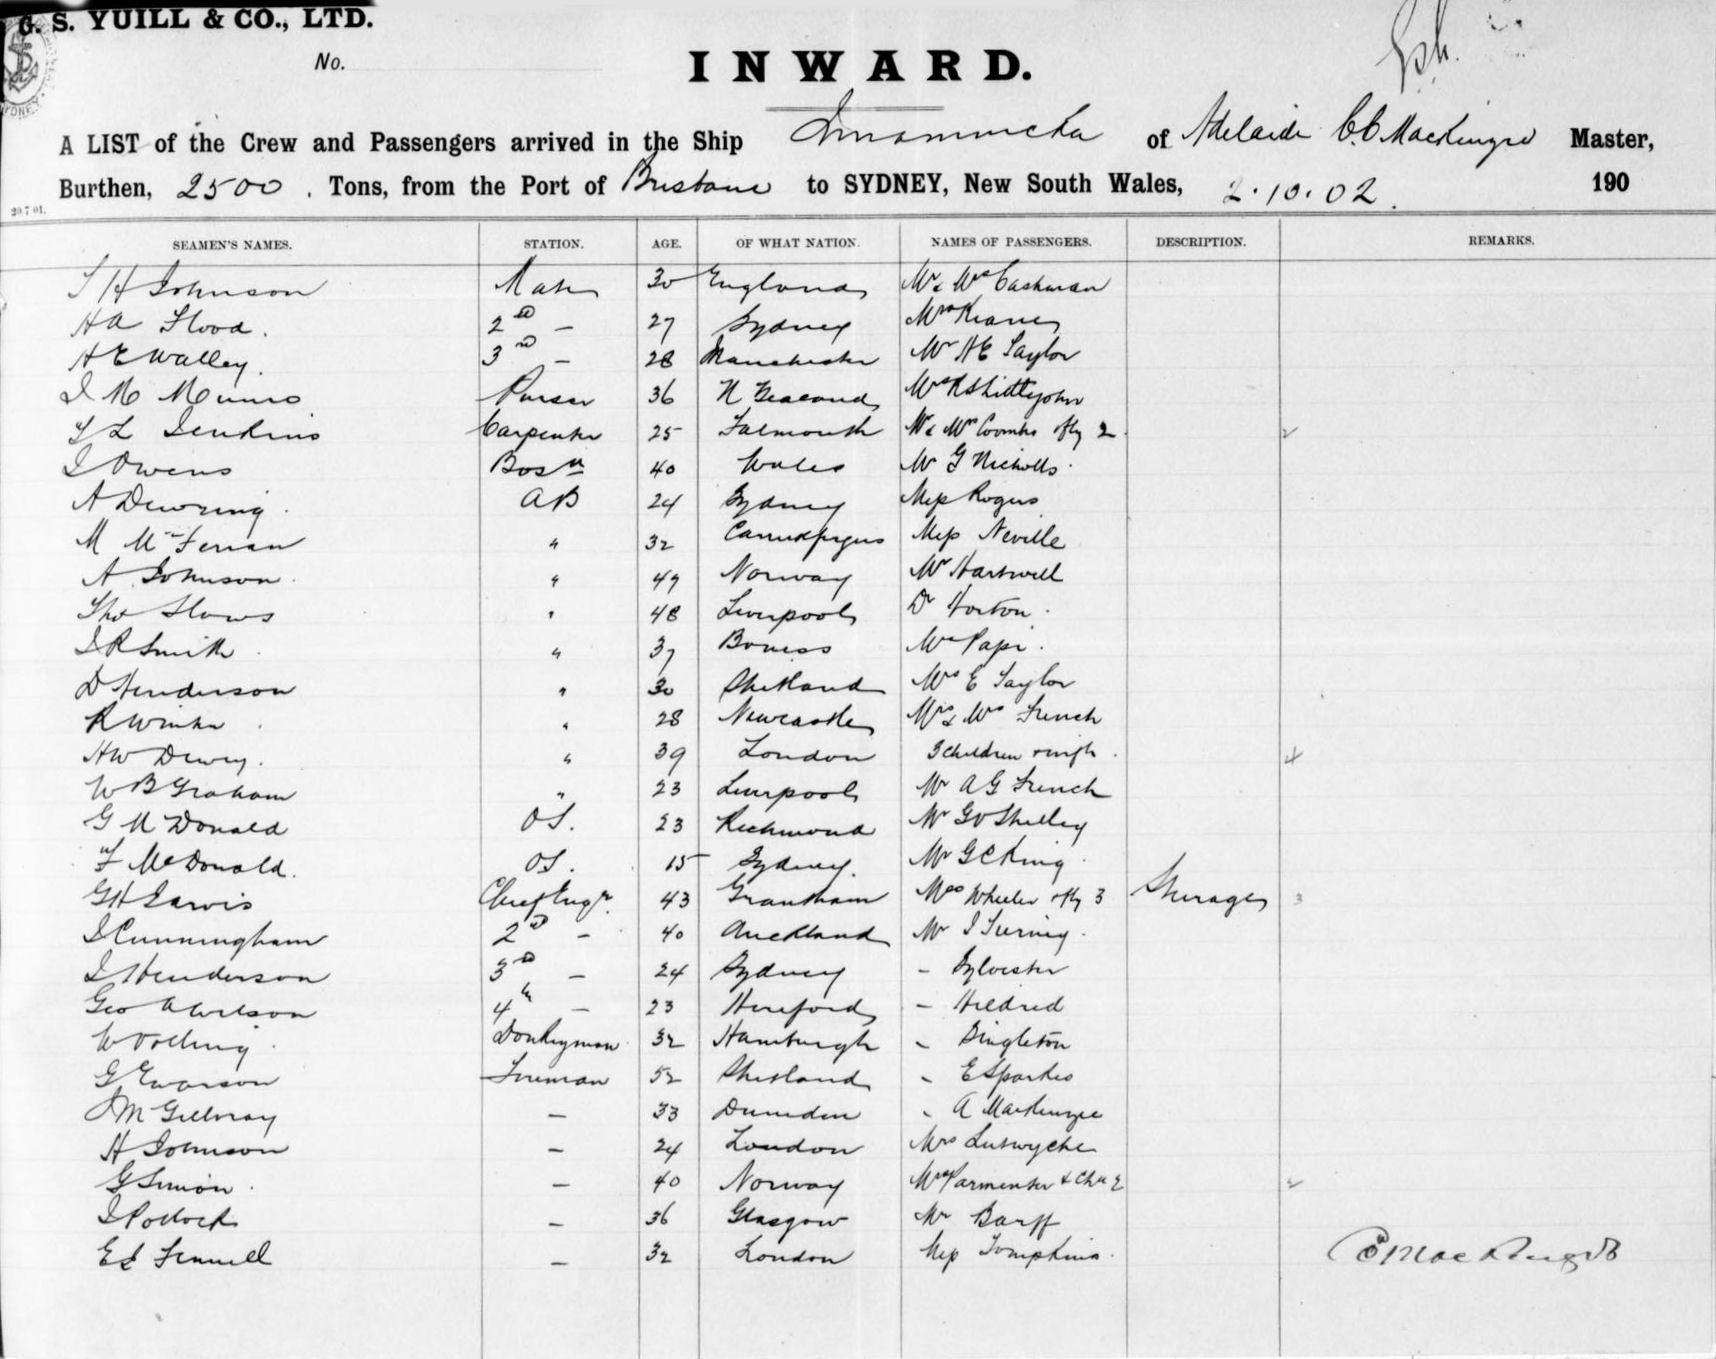 G. S. YUILL & CO., LTD.
No.
INWARD.
A LIST of the Crew and Passengers arrived in the Ship Innamincka of Adelaide C.C. MacKenzie Master,
Burthen, 2500 . Tons, from the Port of Brisbane to SYDNEY, New South Wales, 2.10.02. 190
20.7.01.
SEAMEN'S NAMES. STATION. AGE. OF WHAT NATION. NAMES OF PASSENGERS. DESCRIPTION. REMARKS.
T H Johnson Mate 30 England Mr & Mrs Cashman
H A Flood. 2nd — 27 Sydney Mrs
H E Walley. 3rd — 28 Manchester Mr H E Taylor
J M Munro Purser 36 N Zealand Mrs R Shittlejohn
T L Jenkins Carpenter 25 Falmouth Mr & Mrs Coombs & fly 2. 2
J Owens Bosn 40 Wales Mr G Nicholls.
A Dewring. AB 24 Sydney Miss Rogers
M McFerran " 32 Carrickfergus Miss Neville
A Johnson. " 49 Norway Mr Hartwell
Thos " 48 Liverpool Dr Horton.
J R Smith. " 37 Boness Mr Papi.
D Henderson " 30 Shetland Mrs E Taylor
R Winter. " 28 Newcastle Mr & Mrs French
H W Dewey. " 39 London 3 children & inf. 4
W B Graham " 23 Liverpool Mr A G French
G McDonald OS. 23 Richmond Mr G V Shelley
F McDonald. OS. 15 Sydney. Mr G C King.
G H Jarvis Chief Engr. 43 Grantham Mrs Wheeler & fly 3 Steerage 3
J Cunningham 2nd — 40 Auckland Mr J
J Henderson 3rd — 24 Sydney — Sylvester
Geo A Wilson 4th — 23 Hereford — Hildred
W Donkeyman 32 Hamburgh — Singleton
G Ewarson Fireman 52 Shetland — E Sparkes
J McGillvray — 33 Dunedin — A MacKenzie
H Johnson — 24 London Mrs Lutwyche
G Simon. — 40 Norway Mrs Parmenter & Chn 2 2
J Pollock — 36 Glasgow Mr Barff
E J Fennell — 32 London Miss Tompkins. C C MacKenzie